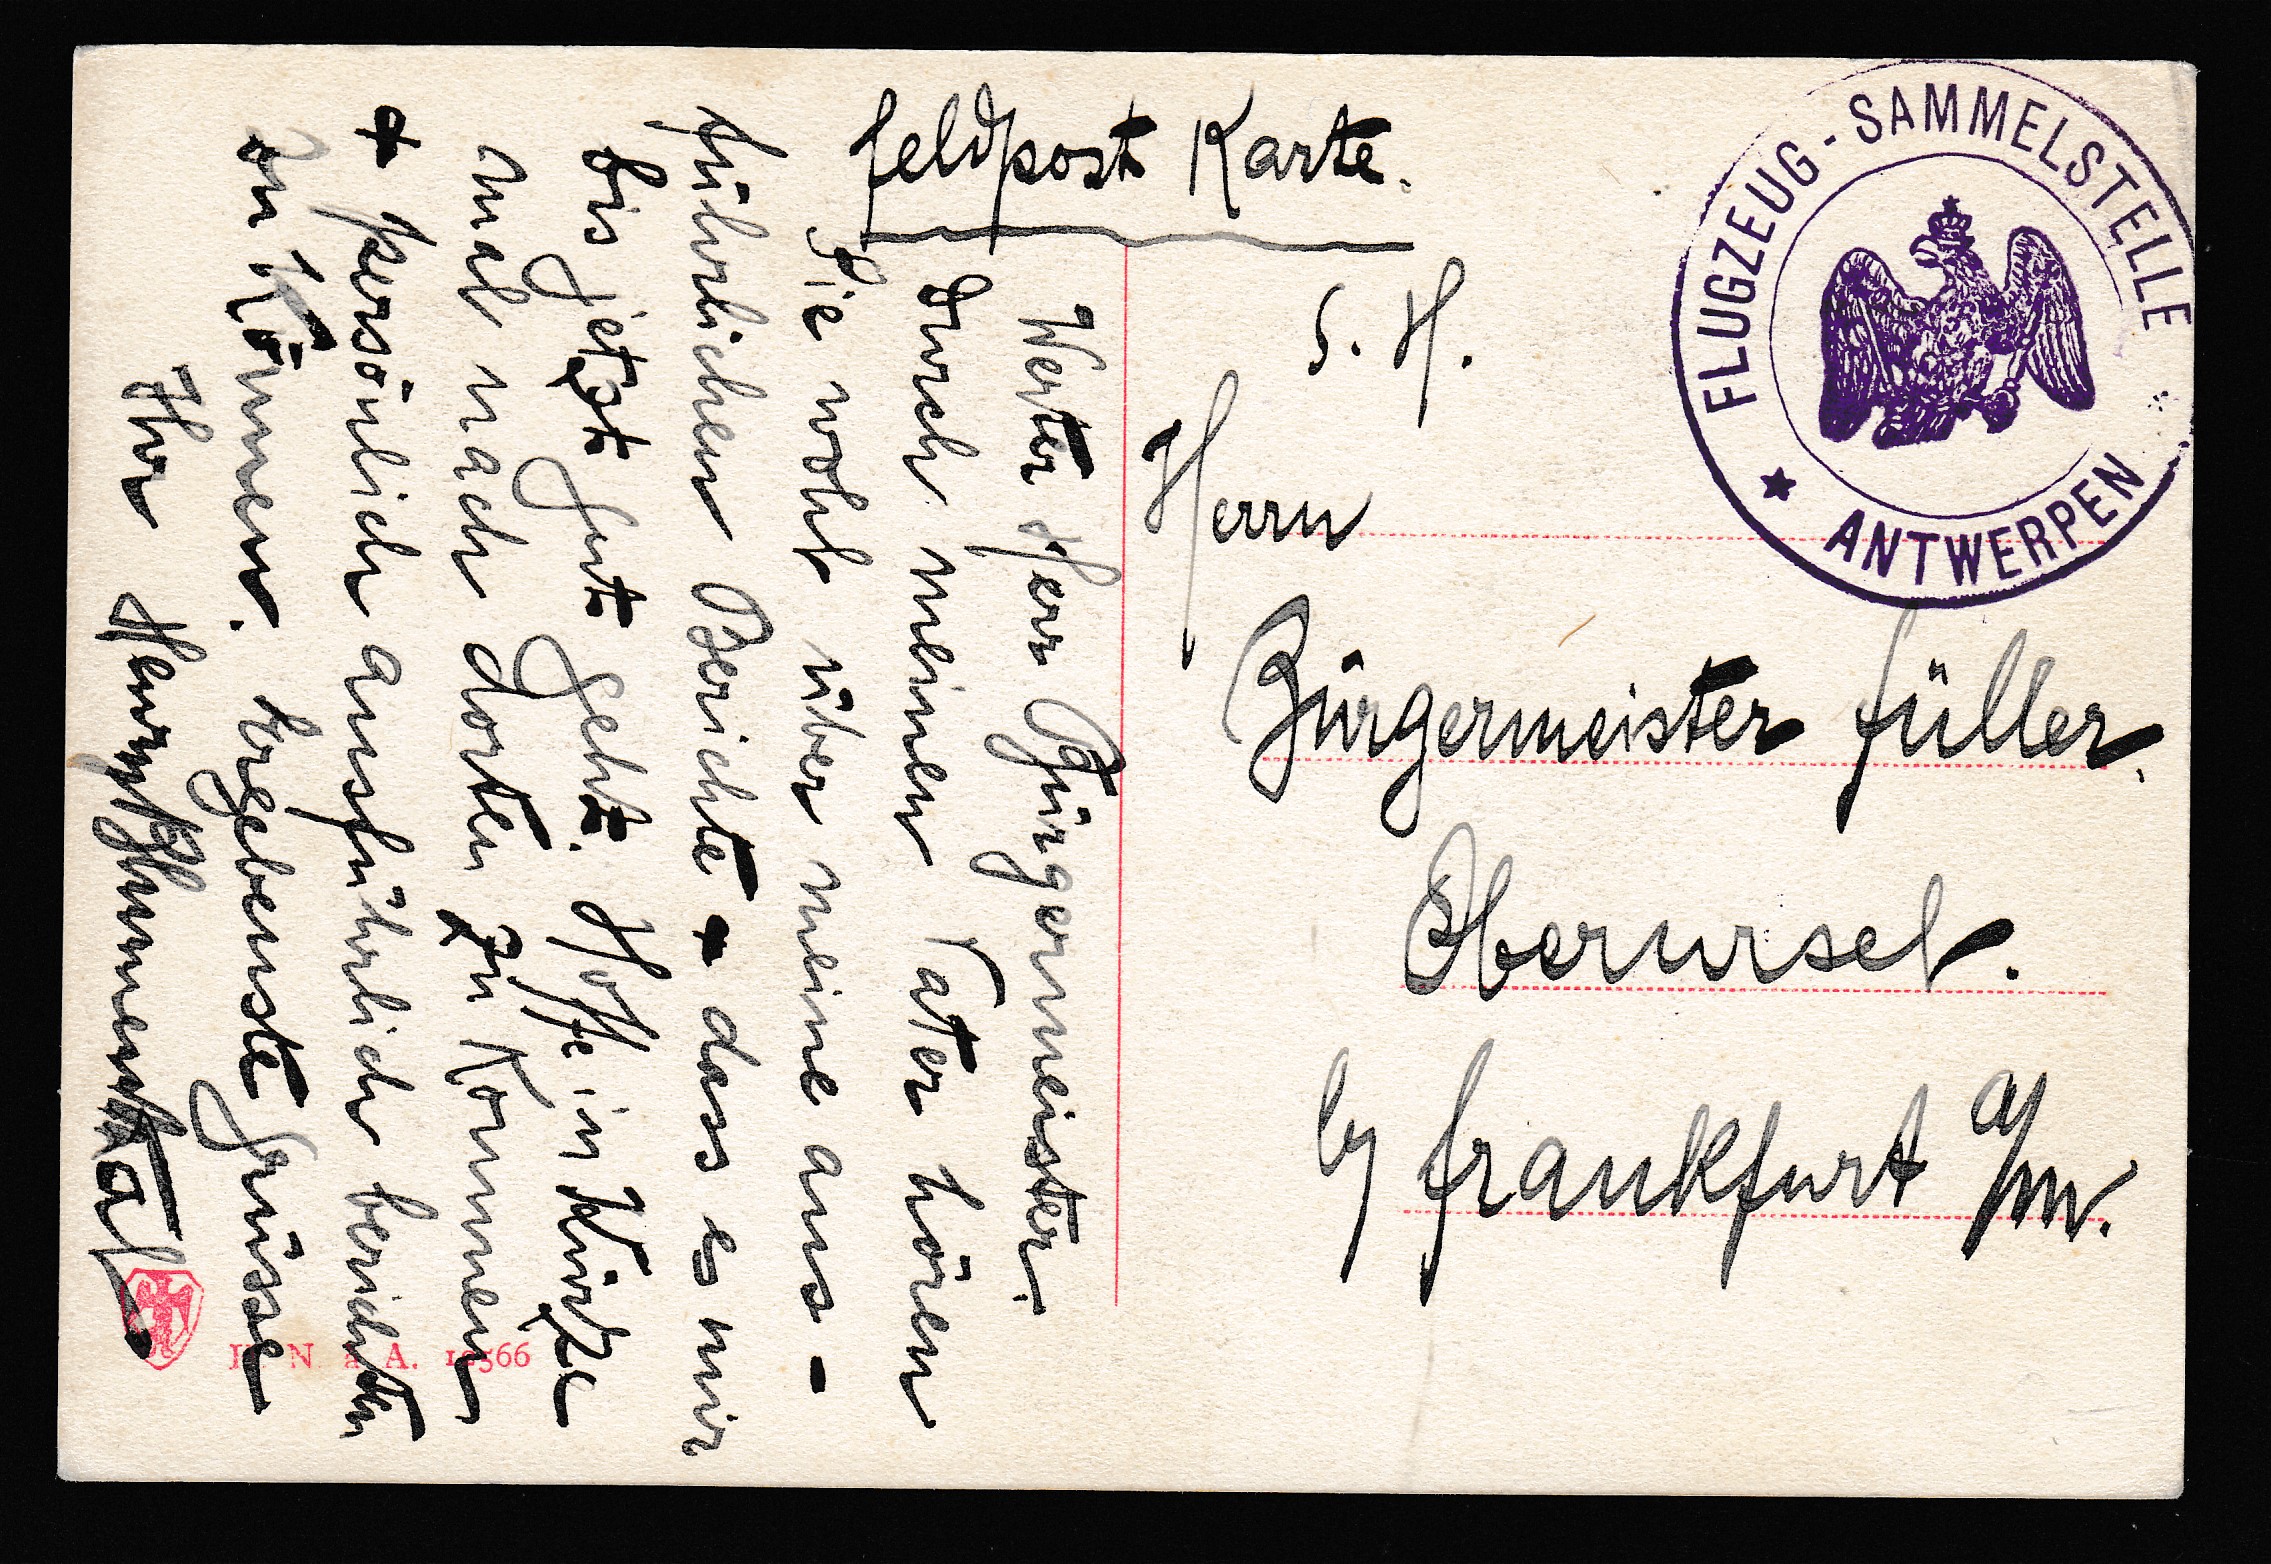 Feldpost Karte.
FLUGZEUG-SAMMELSTELLE
★ ANTWERPEN
S. H.
Herrn
Bürgermeister Füller.
Oberursel.
by Frankfurt a/M.
Werter Herr Bürgermeister.
Durch meinen Vater hören
Sie wohl über meine aus-
führlichen Berichte + dass es mir
bis jetzt gut geht. Hoffe in Kürtze
mal nach dorten zu Kommen
+ persönlich ausführlich berichten
zu Können. Ergebenste Grüsse
Ihr
N a A.